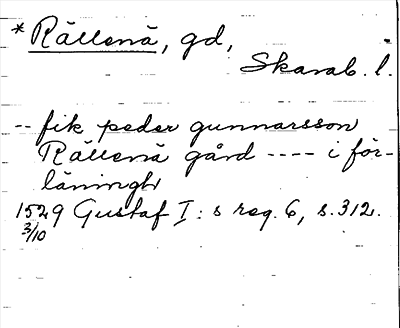 *Rällenä, gd,
Skarab. l.
-- fik peder gunnarsson
Rällenä gård ---- i för-
läningh
1529 Gustaf I: s reg. 6, s. 312.
3/10